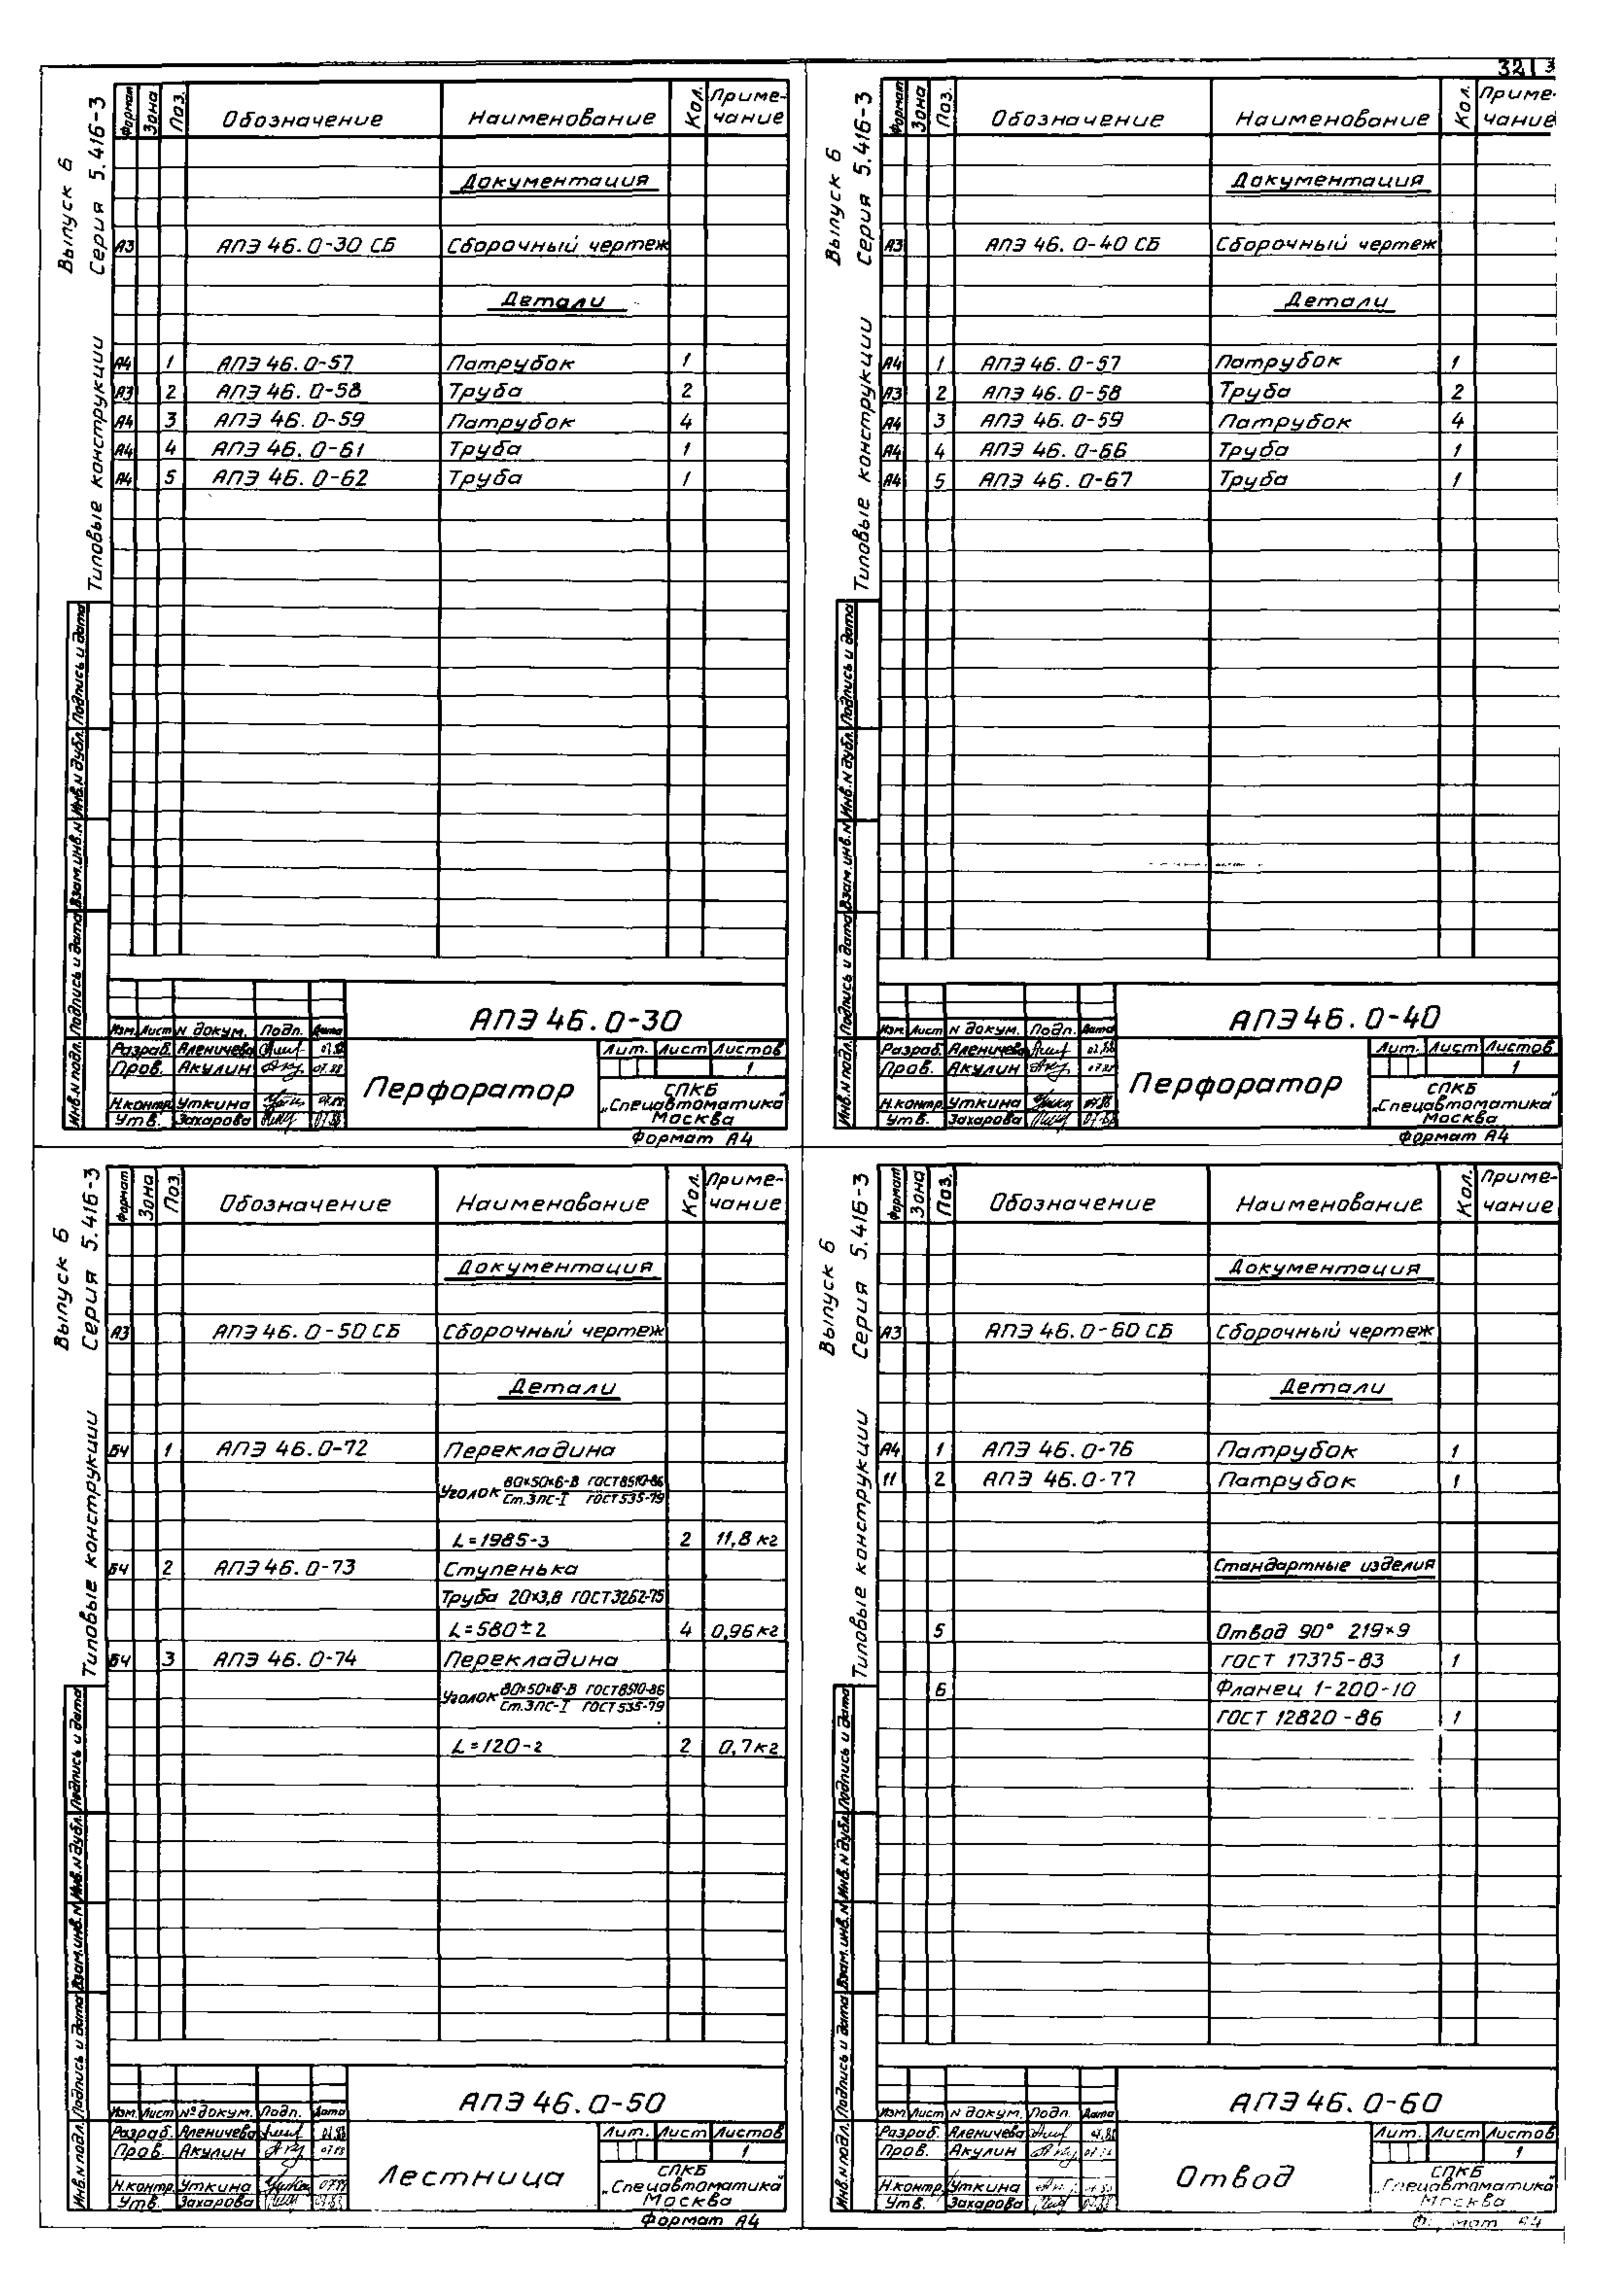 3213
Выпуск 6
Серия 5.416-3
Типовые конструкции
Формат Зона Поз. Обозначение Наименование Кол. Приме-
чание
Документация
А3 АПЭ 46.0-30 СБ Сборочный чертеж
Детали
А4 1 АПЭ 46.0-57 Патрубок 1
А3 2 АПЭ 46.0-58 Труба 2
А4 3 АПЭ 46.0-59 Патрубок 4
А4 4 АПЭ 46.0-61 Труба 1
А4 5 АПЭ 46.0-62 Труба 1
Инв.N подл. Подпись и дата Взам.инв.N Инв.N дубл. Подпись и дата
АПЭ 46.0-30
Изм. Лист N докум. Подп. Дата
Разраб. Аленичева 07.88
Пров. Акулин 07.88
Н.контр. Уткина 07.88
Утв. Захарова 07.88
Перфоратор
Лит. Лист Листов
1
СПКБ
„Спецавтоматика"
Москва
Формат А4
Выпуск 6
Серия 5.416-3
Типовые конструкции
Формат Зона Поз. Обозначение Наименование Кол. Приме-
чание
Документация
А3 АПЭ 46.0-40 СБ Сборочный чертеж
Детали
А4 1 АПЭ 46.0-57 Патрубок 1
А3 2 АПЭ 46.0-58 Труба 2
А4 3 АПЭ 46.0-59 Патрубок 4
А4 4 АПЭ 46.0-66 Труба 1
А4 5 АПЭ 46.0-67 Труба 1
Инв.N подл. Подпись и дата Взам.инв.N Инв.N дубл. Подпись и дата
АПЭ 46.0-40
Изм. Лист N докум. Подп. Дата
Разраб. Аленичева 07.88
Пров. Акулин 07.88
Н.контр. Уткина 07.88
Утв. Захарова 07.88
Перфоратор
Лит. Лист Листов
1
СПКБ
„Спецавтоматика"
Москва
Формат А4
Выпуск 6
Серия 5.416-3
Типовые конструкции
Формат Зона Поз. Обозначение Наименование Кол. Приме-
чание
Документация
А3 АПЭ 46.0-50 СБ Сборочный чертеж
Детали
БЧ 1 АПЭ 46.0-72 Перекладина
Уголок 80×50×6-В ГОСТ 8510-86
Ст.3ПС-I ГОСТ 535-79
L=1985-3 2 11,8 кг
БЧ 2 АПЭ 46.0-73 Ступенька
Труба 20×3,8 ГОСТ 3262-75
L=580±2 4 0,96 кг
БЧ 3 АПЭ 46.0-74 Перекладина
Уголок 80×50×6-В ГОСТ 8510-86
Ст.3ПС-I ГОСТ 535-79
L=120-2 2 0,7 кг
Инв.N подл. Подпись и дата Взам.инв.N Инв.N дубл. Подпись и дата
АПЭ 46.0-50
Изм. Лист № докум. Подп. Дата
Разраб. Аленичева 07.88
Пров. Акулин 07.88
Н.контр. Уткина 07.88
Утв. Захарова 07.88
Лестница
Лит. Лист Листов
1
СПКБ
„Спецавтоматика"
Москва
Формат А4
Выпуск 6
Серия 5.416-3
Типовые конструкции
Формат Зона Поз. Обозначение Наименование Кол. Приме-
чание
Документация
А3 АПЭ 46.0-60 СБ Сборочный чертеж
Детали
А4 1 АПЭ 46.0-76 Патрубок 1
11 2 АПЭ 46.0-77 Патрубок 1
Стандартные изделия
5 Отвод 90° 219×9
ГОСТ 17375-83 1
6 Фланец 1-200-10
ГОСТ 12820-86 1
Инв.N подл. Подпись и дата Взам.инв.N Инв.N дубл. Подпись и дата
АПЭ 46.0-60
Изм. Лист N докум. Подп. Дата
Разраб. Аленичева
Пров. Акулин
Н.контр. Уткина
Утв. Захарова
Отвод
Лит. Лист Листов
1
СПКБ
„Спецавтоматика"
Москва
Формат А4